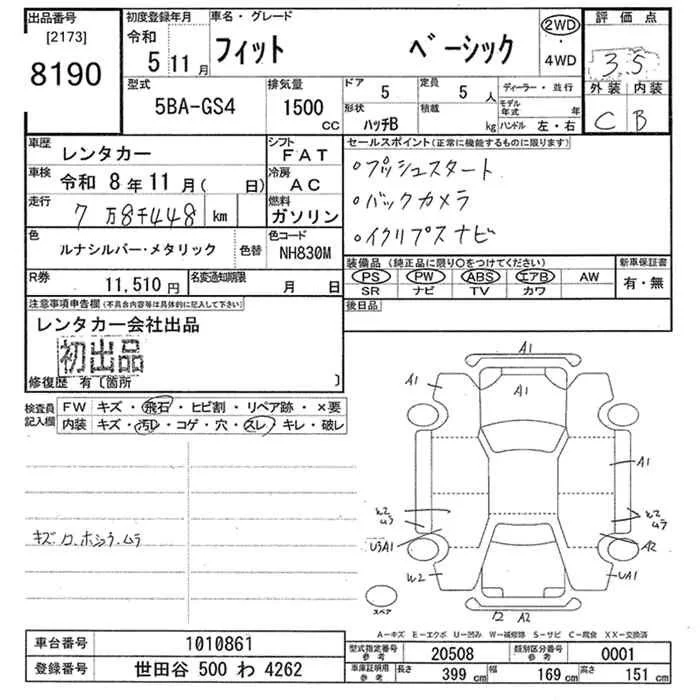 出品番号 初度登録年月 車名・グレード 2WD・4WD 評価点
[2173] 8190
令和 5 11月 フィット ベーシック 3.5
外装 内装
C B
型式 5BA-GS4
排気量 1500 CC
ドア 5
定員 5人
ディーラー・並行
形状 ハッチB
積載 kg
モデル年式 年
ハンドル 左・右
車歴 レンタカー
シフト FAT
車検 令和 8年 11月( 日)
冷房 AC
走行 7万8千448 km
燃料 ガソリン
色 ルナシルバー・メタリック 色替
色コード NH830M
R券 11,510円
名変通知期限 月 日
セールスポイント(正常に機能するものに限ります)
○プッシュスタート
○バックカメラ
○イクリプスナビ
装備品(純正品に限り○をつけてください) 新車保証書
PS PW ABS エアB AW 有・無
SR ナビ TV カワ
後日品
注意事項申告欄(不具合内容等は具体的に記入して下さい)
レンタカー会社出品
初出品
修復歴 有〔箇所 〕
検査員記入欄
FW キズ・飛石・ヒビ割・リペア跡・×要
内装 キズ・汚レ・コゲ・穴・スレ・キレ・破レ
A1
A1 A1
A1
A2
W2 UA1
A2
スペア
A−キズ E−エクボ U−凹み W−補修跡 S−サビ C−腐食 XX−交換済
車台番号 1010861
登録番号 世田谷 500 わ 4262
型式指定番号 参考 20508 類別区分番号 参考 0001
車庫証明用 参考 長さ 399 cm 幅 169 cm 高さ 151 cm